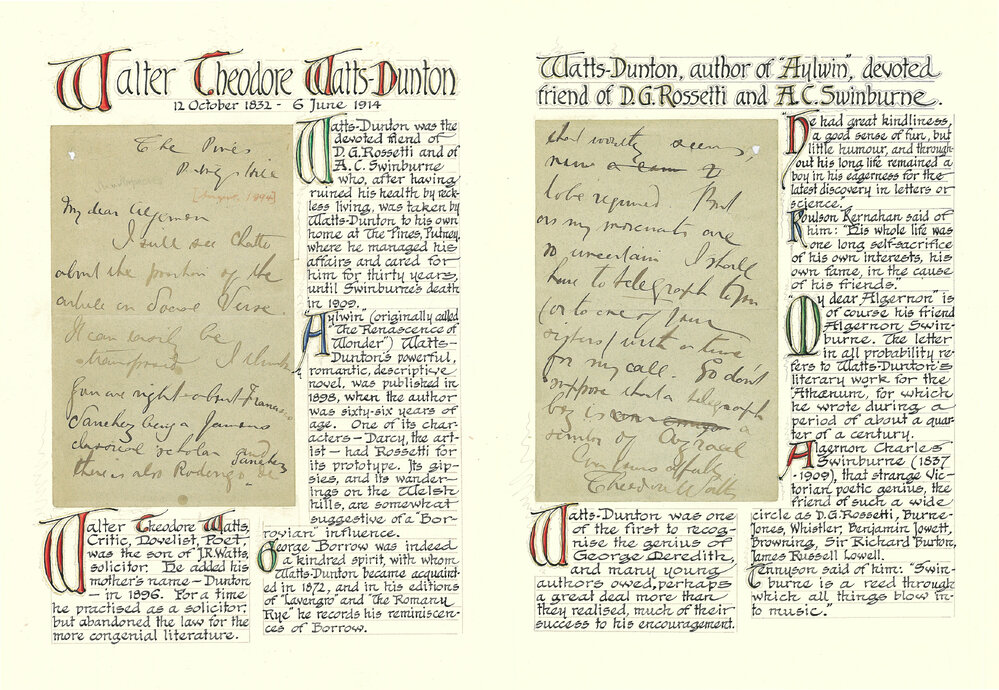 Walter Theodore Watts-Dunton
12 October 1832 - 6 June 1914
The Pines
Putney Hill
[August 1894]
My dear Algernon
I will see Chatto
about the position of the
article on Social Verse.
It can easily be
transposed I think
you are right about Francis
Sanchez being a famous
classical scholar and
there is also Roderigo de
Sanchez
Watts-Dunton was the
devoted friend of
D.G.Rossetti and of
A.C. Swinburne
who, after having
ruined his health by reck-
less living, was taken by
Watts-Dunton to his own
home at The Pines, Putney,
where he managed his
affairs and cared for
him for thirty years,
until Swinburne's death
in 1909.
"Aylwin" (originally called
"The Renascence of
Wonder") Watts-
Dunton's powerful,
romantic, descriptive
novel, was published in
1898, when the author
was sixty-six years of
age. One of its char-
acters - Darcy, the art-
ist - had Rossetti for
its prototype. Its gip-
sies, and its wander-
ings on the Welsh
hills, are somewhat
suggestive of a "Bor-
rovian" influence.
George Borrow was indeed
a kindred spirit, with whom
Watts-Dunton became acquaint-
ed in 1872, and in his editions
of "Lavengro" and "The Romany
Rye" he records his reminiscen-
ces of Borrow.
Walter Theodore Watts,
Critic, Novelist, Poet,
was the son of J.R.Watts,
solicitor. He added his
mother's name - Dunton
- in 1896. For a time
he practised as a solicitor,
but abandoned the law for the
more congenial literature.
Watts-Dunton, author of "Aylwin", devoted
friend of D.G.Rossetti and A.C.Swinburne.
seems,
to be required But
as my movements are
so uncertain I shall
have to telegraph to you
(or to one of your
sisters) with a time
for my call. So don't
suppose that a telegraph
boy is a
Theodore Watts
He had great kindliness,
a good sense of fun, but
little humour, and through-
out his long life remained a
boy in his eagerness for the
latest discovery in letters or
science."
Roulson Kernahan said of
him: "His whole life was
one long self-sacrifice
of his own interests, his
own fame, in the cause
of his friends."
"My dear Algernon" is
of course his friend
Algernon Swin-
burne. The letter
in all probability re-
fers to Watts-Dunton's
literary work for the
"Athænum", for which
he wrote during a
period of about a quar-
ter of a century.
Algernon Charles
Swinburne (1837
-1909), that strange Vic-
torian poetic genius, the
friend of such a wide
circle as D.G.Rossetti, Burne-
Jones, Whistler, Benjamin Jowett,
Browning, Sir Richard Burton,
James Russell Lowell.
Tennyson said of him: "Swin-
burne is a reed through
which all things blow in-
to music."
Watts-Dunton was one
of the first to recog-
nise the genius of
George Meredith,
and many young
authors owed, perhaps
a great deal more than
they realised, much of their
success to his encouragement.